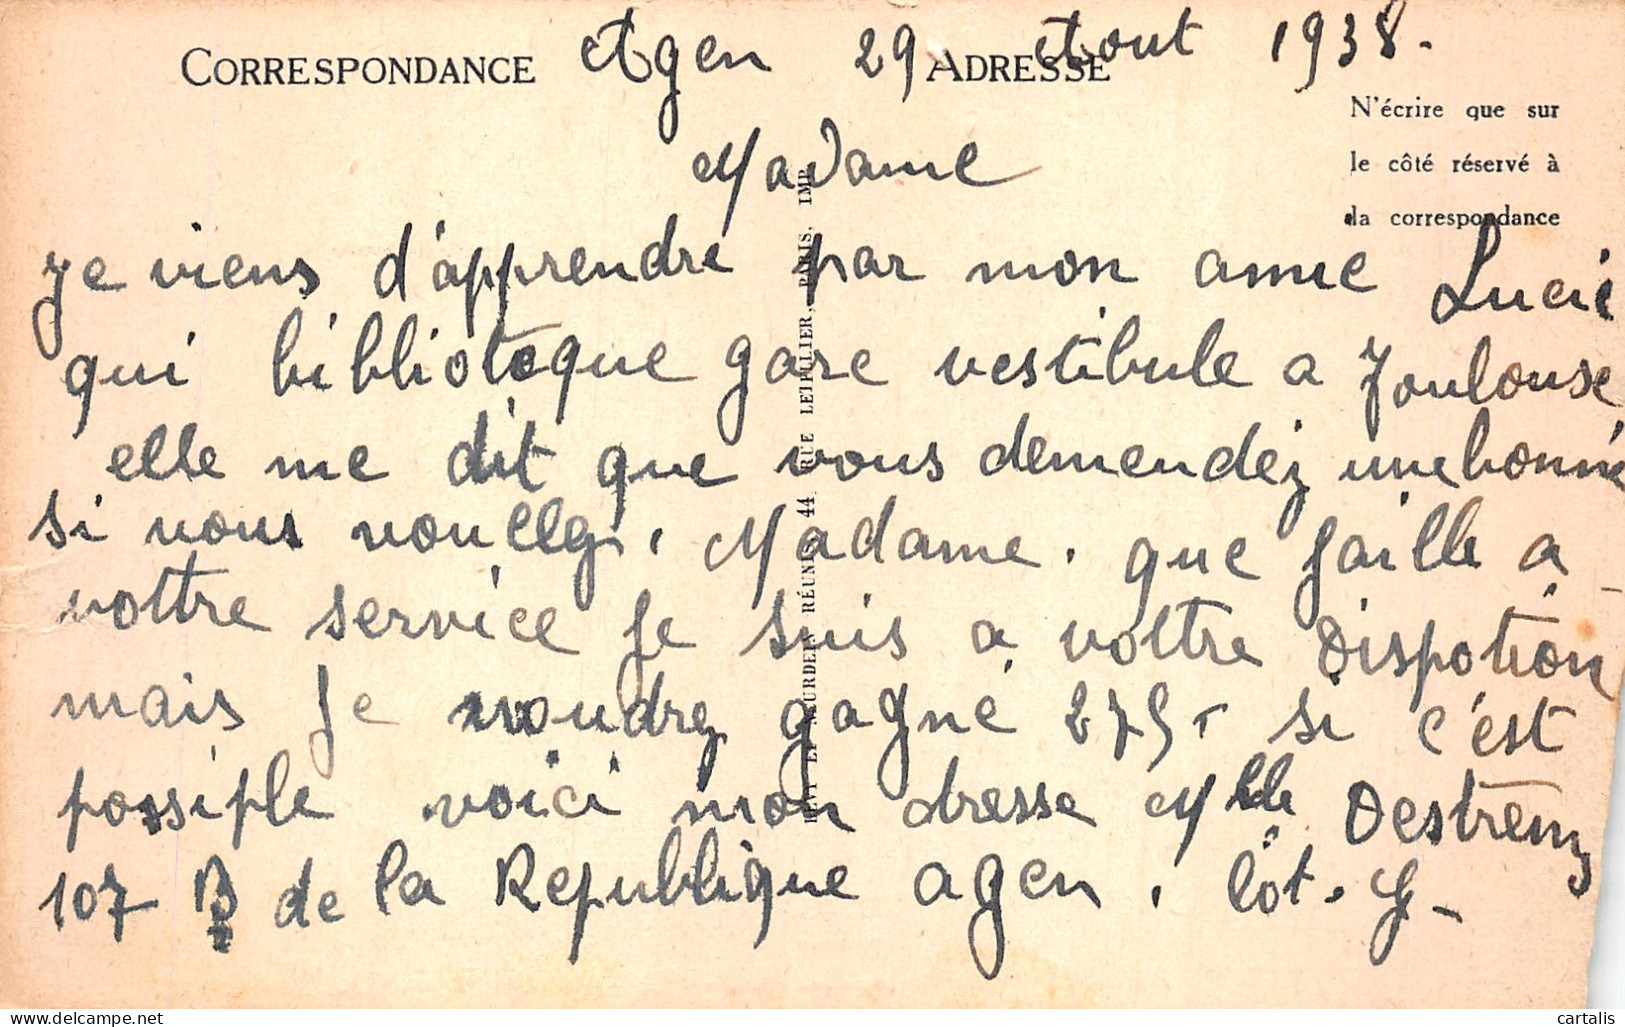 CORRESPONDANCE Agen 29 Aout 1938.
ADRESSE
N'écrire que sur
le côté réservé à
la correspondance
Madame
je viens d'apprendre par mon amie Lucie
qui biblioteque gare vestibule a Toulouse
elle me dit que vous demendéz une bonne
si vous voullez, Madame. que jaille a
vottre service je suis a vottre dispotion
mais je voudrez gagné 275 si c'est
possiple voici mon dresse Mlle Destrem
107 B de la Republique agen. Lot. G-
RUE LETELLIER, PARIS, IMP.
44
RÉUNIS
cartalis